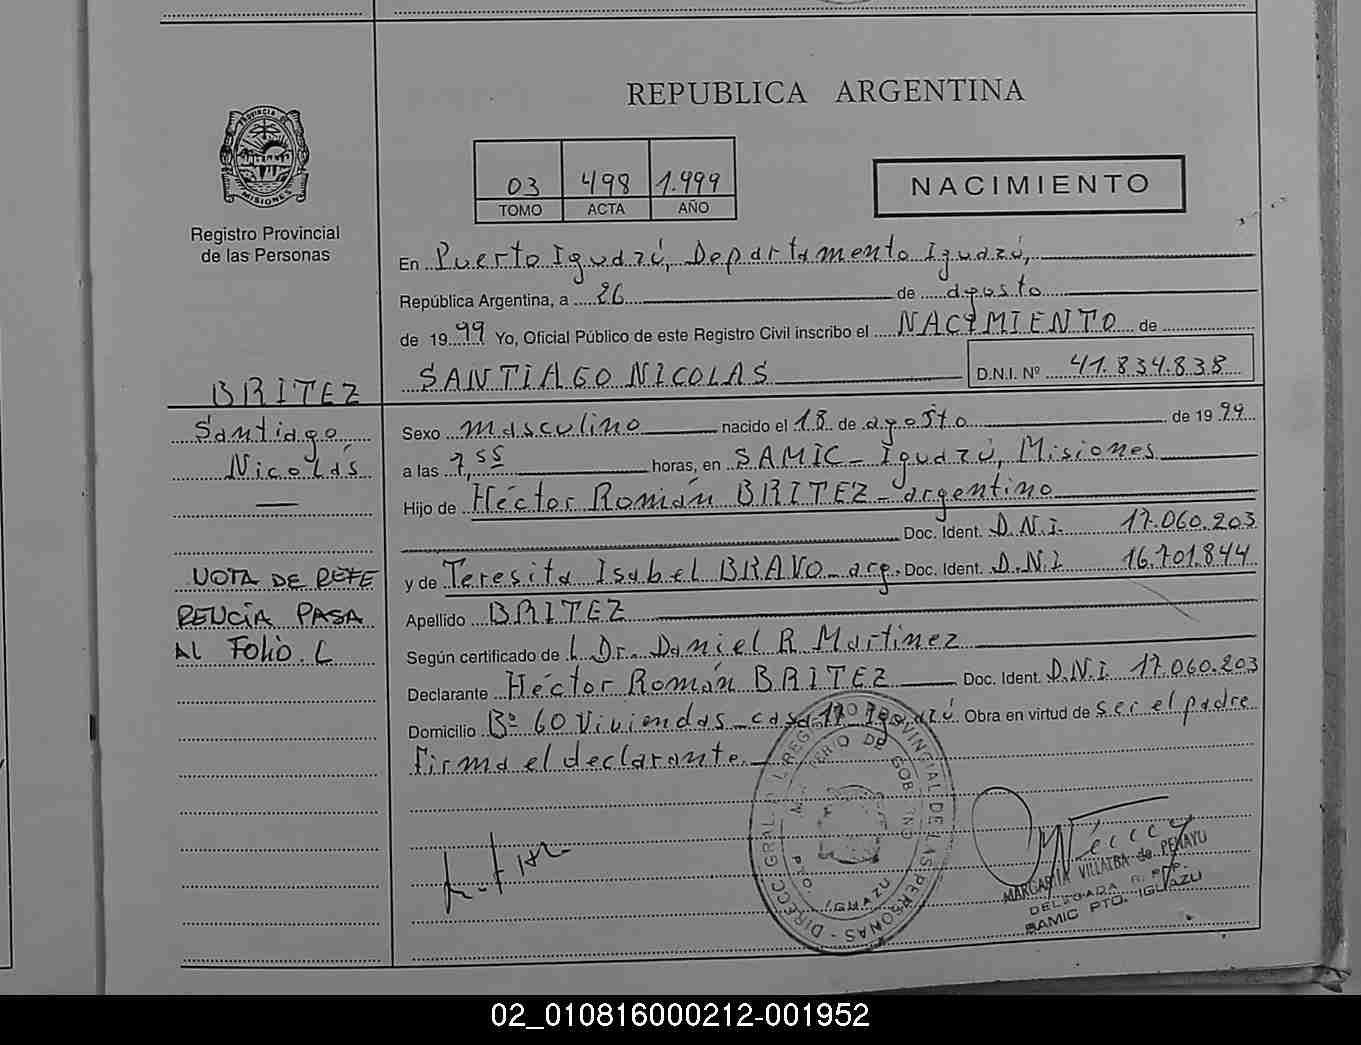 REPUBLICA ARGENTINA
PROVINCIA DE
MISIONES
Registro Provincial
de las Personas
03 498 1.999
TOMO ACTA AÑO
NACIMIENTO
En Puerto Iguazú, Departamento Iguazú,
República Argentina, a 26 de agosto
de 1999 Yo, Oficial Público de este Registro Civil inscribo el NACIMIENTO de
SANTIAGO NICOLAS D.N.I. Nº 41.834.838
BRITEZ
Santiago
Nicolás
—
NOTA DE REFE
RENCIA PASA
AL FOLIO. C
Sexo masculino nacido el 18 de agosto de 1999
a las 7,55 horas, en SAMIC - Iguazú, Misiones
Hijo de Héctor Román BRITEZ - argentino
Doc. Ident. D.N.I. 17.060.203
y de Teresita Isabel BRAVO - arg. Doc. Ident. D.N.I 16.701.844
Apellido BRITEZ
Según certificado de Dr. Daniel R Martinez
Declarante Héctor Román BRITEZ Doc. Ident. D.N.I. 17.060.203
Domicilio Bº 60 Viviendas - casa 17 - Iguazú Obra en virtud de ser el padre
firma el declarante
DIRECC. GRAL. DEL REGISTRO PROVINCIAL DE LAS PERSONAS
IGUAZU
MARGARITA VILLALBA de PENAYO
DELEGADA
SAMIC PTO. IGUAZU
02_010816000212-001952